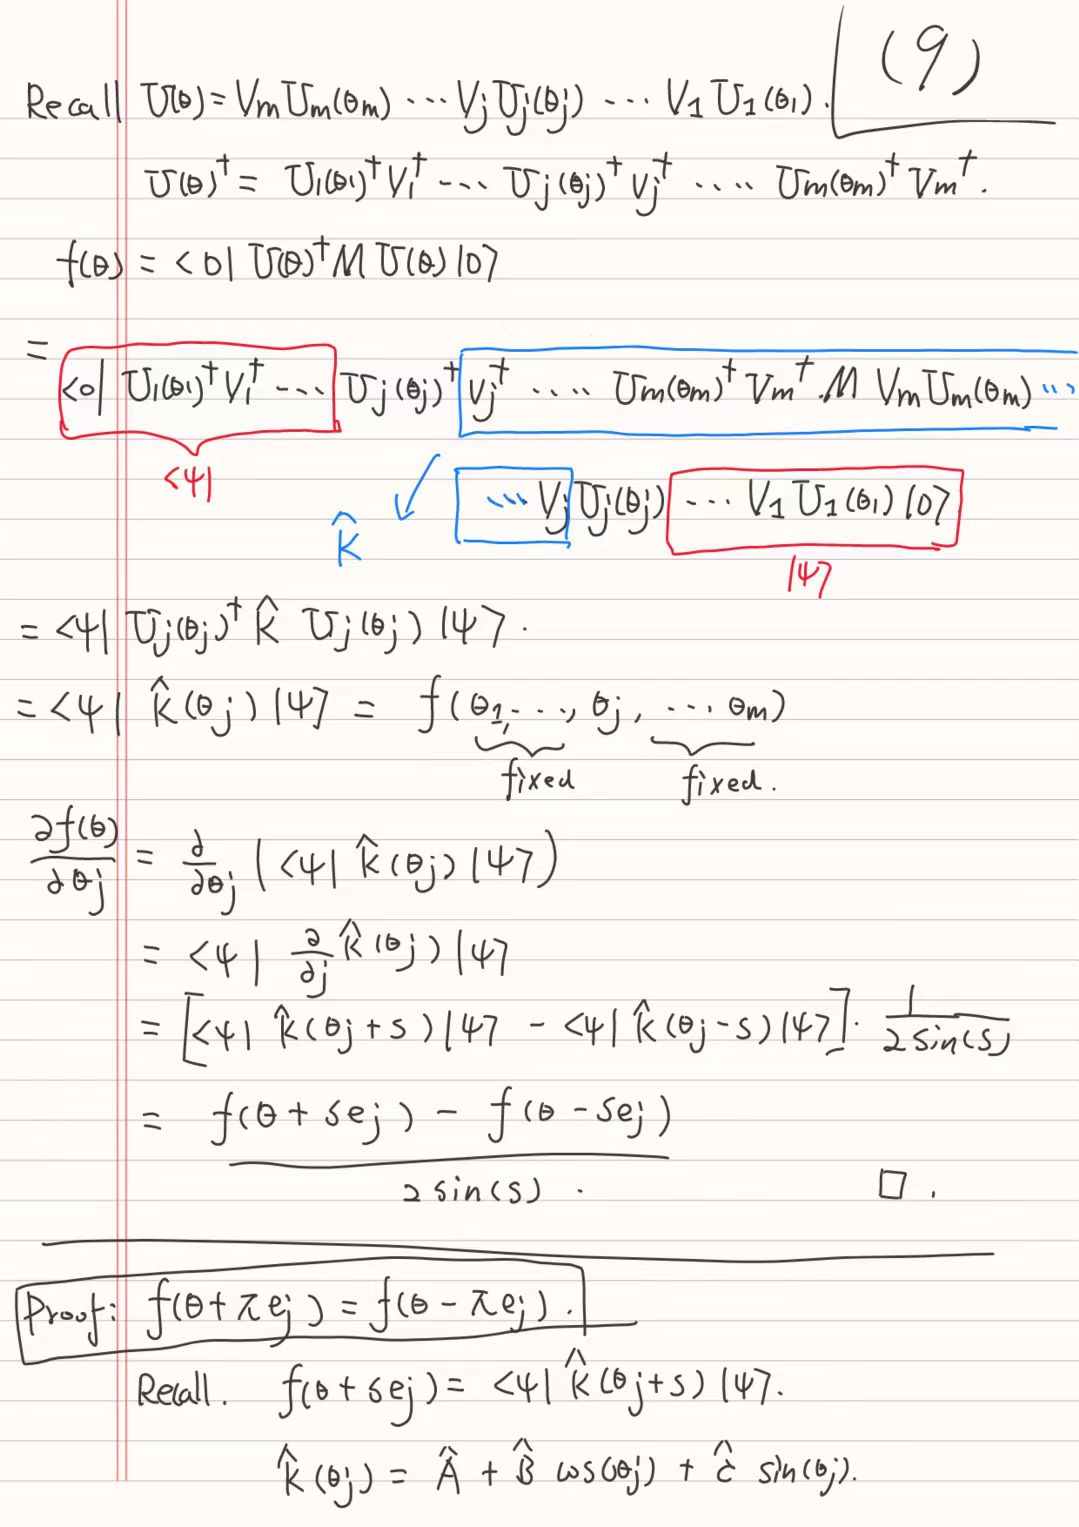 (9)
Recall U(θ) = Vm Um(θm) ... Vj Uj(θj) ... V1 U1(θ1).
U(θ)† = U1(θ1)† V1† .... Uj(θj)† Vj† .... Um(θm)† Vm†.
f(θ) = <0| U(θ)† M U(θ) |0>
= <0| U1(θ1)† V1† ... Uj(θj)† Vj† .... Um(θm)† Vm† . M Vm Um(θm) ...
<ψ|
... Vj Uj(θj) ... V1 U1(θ1) |0>
K̂
|ψ>
= <ψ| Uj(θj)† K̂ Uj(θj) |ψ>.
= <ψ| K̂(θj) |ψ> = f(θ1, ..., θj, ... θm)
fixed fixed.
∂f(θ)/∂θj = ∂/∂θj (<ψ| K̂(θj) |ψ>)
= <ψ| ∂/∂j K̂(θj) |ψ>
= [<ψ| K̂(θj+s) |ψ> - <ψ| K̂(θj-s) |ψ>] · 1/2sin(s)
= f(θ + sej) - f(θ - sej)
2 sin(s) . □.
Proof: f(θ + πej) = f(θ - πej).
Recall. f(θ + sej) = <ψ| K̂(θj+s) |ψ>.
K̂(θj) = Â + B̂ cos(θj) + Ĉ sin(θj).